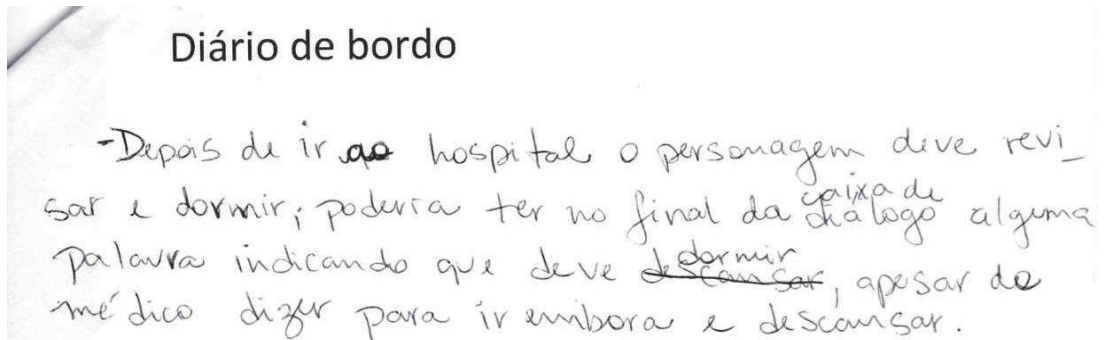 Diário de bordo
-Depois de ir ao hospital o personagem deve revi_
sar e dormir; poderia ter no final da caixa de diálogo alguma
palavra indicando que deve descansar dormir, apesar do
médico dizer para ir embora e descansar.